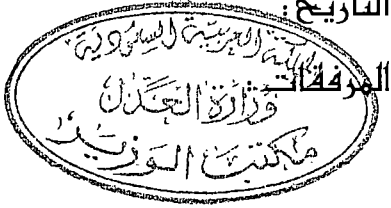 التاريخ :
المرفقات :
المملكة العربية السعودية
وزارة العدل
مكتب الوزير